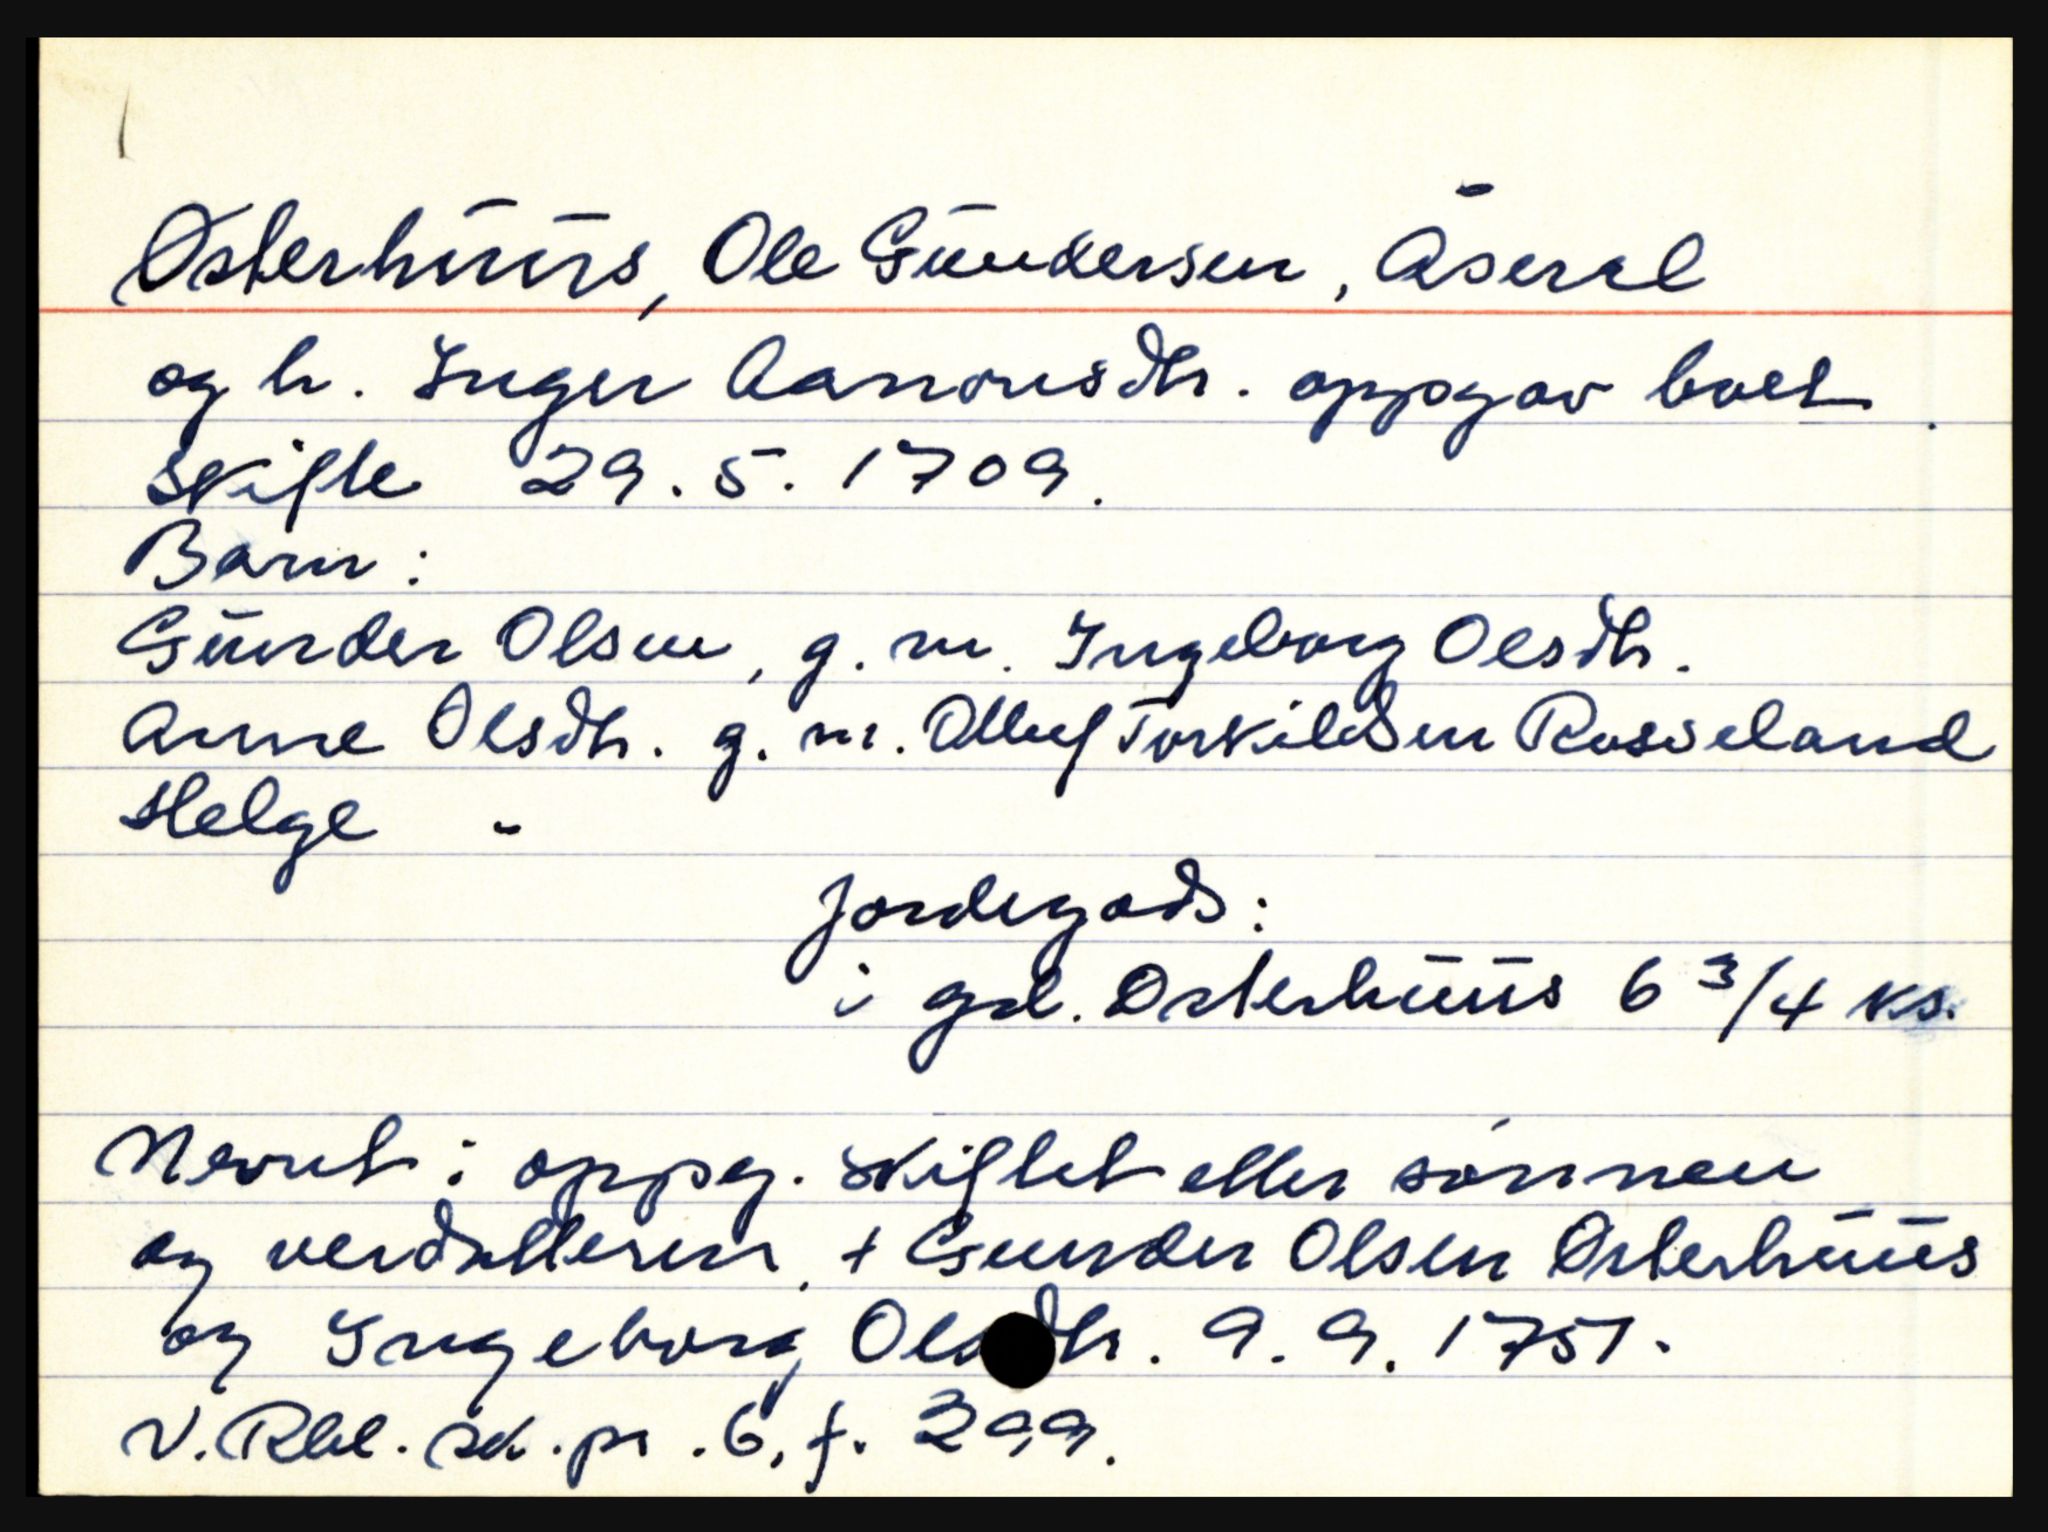 Østerhuus, Ole Gundersen, Åseral
og h. Inger Aanonsdtr. oppgav boet
skifte 29.5.1709.
Barn:
Gunder Olsen, g.m. Ingeborg Olsdtr.
Anne Olsdtr. g.m. Olluf Torkildsen Rosseland
Helge "
Jordegods:
i grd. Østerhuus 6 3/4 ks.
Nevnt i oppg. skiftet etter sønnen
og verdatteren, + Gunder Olsen Østerhuus
og Ingeborg Olsdtr. 9.9.1751.
V. Rbl. sk. pr. 6, f. 299.